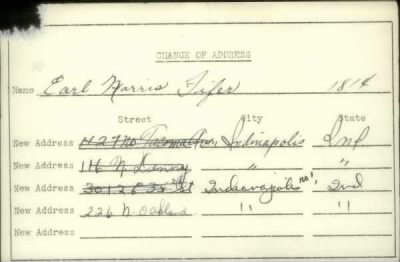 CHANGE OF ADDRESS
Name Earl Norris Fifer 1814
Street City State
New Address 427 No Tacoma Ave, Indinapolis Ind
New Address 116 N. Denny " "
New Address 3012 E 35 St Indianapolis "no", Ind
New Address 226 N. Oakland " "
New Address